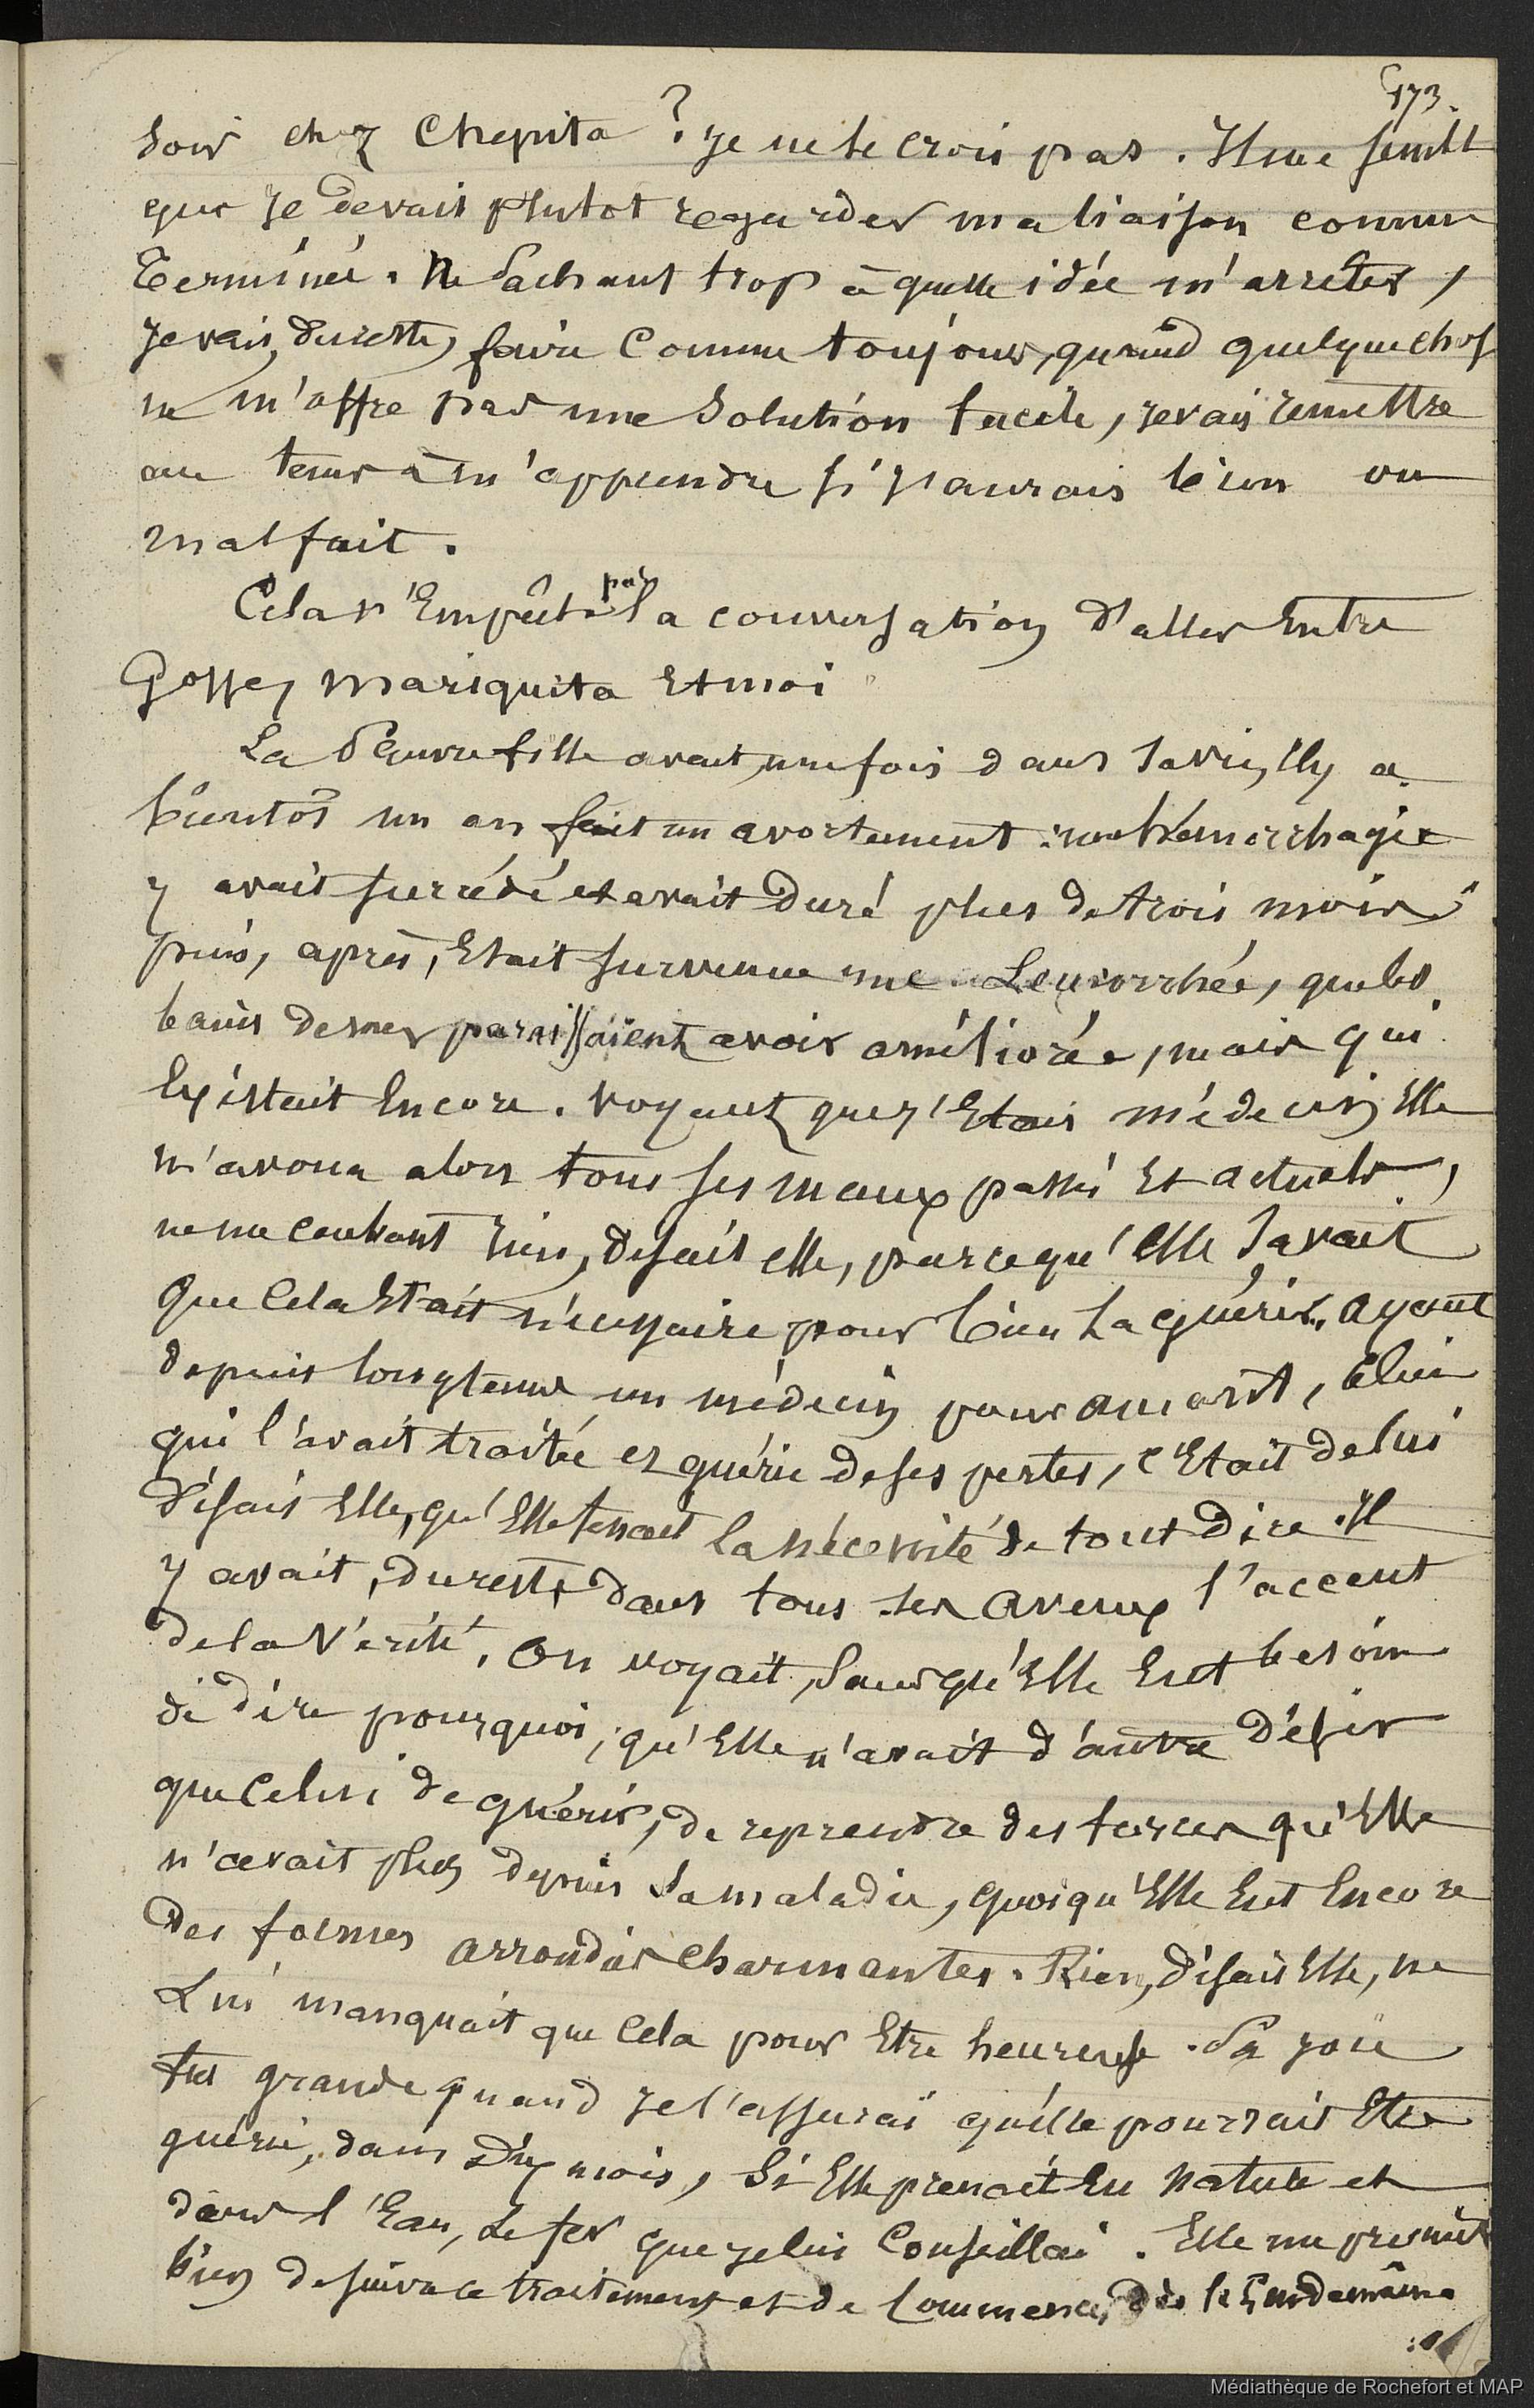 173.
Soir chez Chepita ? je ne le crois pas . Il me semble
que je devais plutot regarder ma liaison comme
Terminée . Ne Sachant trop à quelle idée m'arrêter ,
je vais, du reste, faire Comme toujours, quand quelque chose
ne m'offre pas une Solution facile, je vais remettre
au tems à m'apprendre si j'aurais bien ou
mal fait .
Cela n'Empêcha pas la conversation d'aller Entre
Gosse, Mariquita Et moi
La Pauvre fille avait, une fois dans sa vie, il y a
bientôt un an fait un avortement : une hémorrhagie
y avait succédé et avait Duré plus de trois mois ;
puis, après, Etait survenue une Leucorrhée, que les
bains de mer paraissaient avoir améliorée, mais qui
Existait Encore . Voyant que j'Etais médecin, Elle
m'avoua alors tous ses maux passés Et actuels ,
ne me cachant rien, disait elle, parcequ'elle Savait
que Cela Etait nécessaire pour bien La guérir. Ayant
depuis longtems un médecin pour amant, Celui
qui l'avait traitée et guérie de ses pertes, c'Etait de lui
disait Elle, qu'Elle tenait la nécessité de tout Dire . Il
y avait, du reste, dans tous ses aveux l'accent
de la Vérité . On voyait, Sans qu'Elle Eut besoin
de dire pourquoi, qu'Elle n'avait d'autre Désir
que Celui de guérir, de reprendre des forces qu'Elle
n'avait plus depuis Sa maladie, quoiqu'Elle Eut Encore
Des formes arrondies Charmantes . Rien, disait Elle, ne
Lui manquait que Cela pour Etre heureuse . Sa joie
fut grande quand je l'assurai qu'elle pourrait Etre
guérie, dans Dix mois, Si Elle prenait En Nature et
dans l'Eau, Le fer que je lui Conseillai . Elle me promit
bien de suivre ce traitement et de Commencer, dès le Lendemain.
Médiathèque de Rochefort et MAP